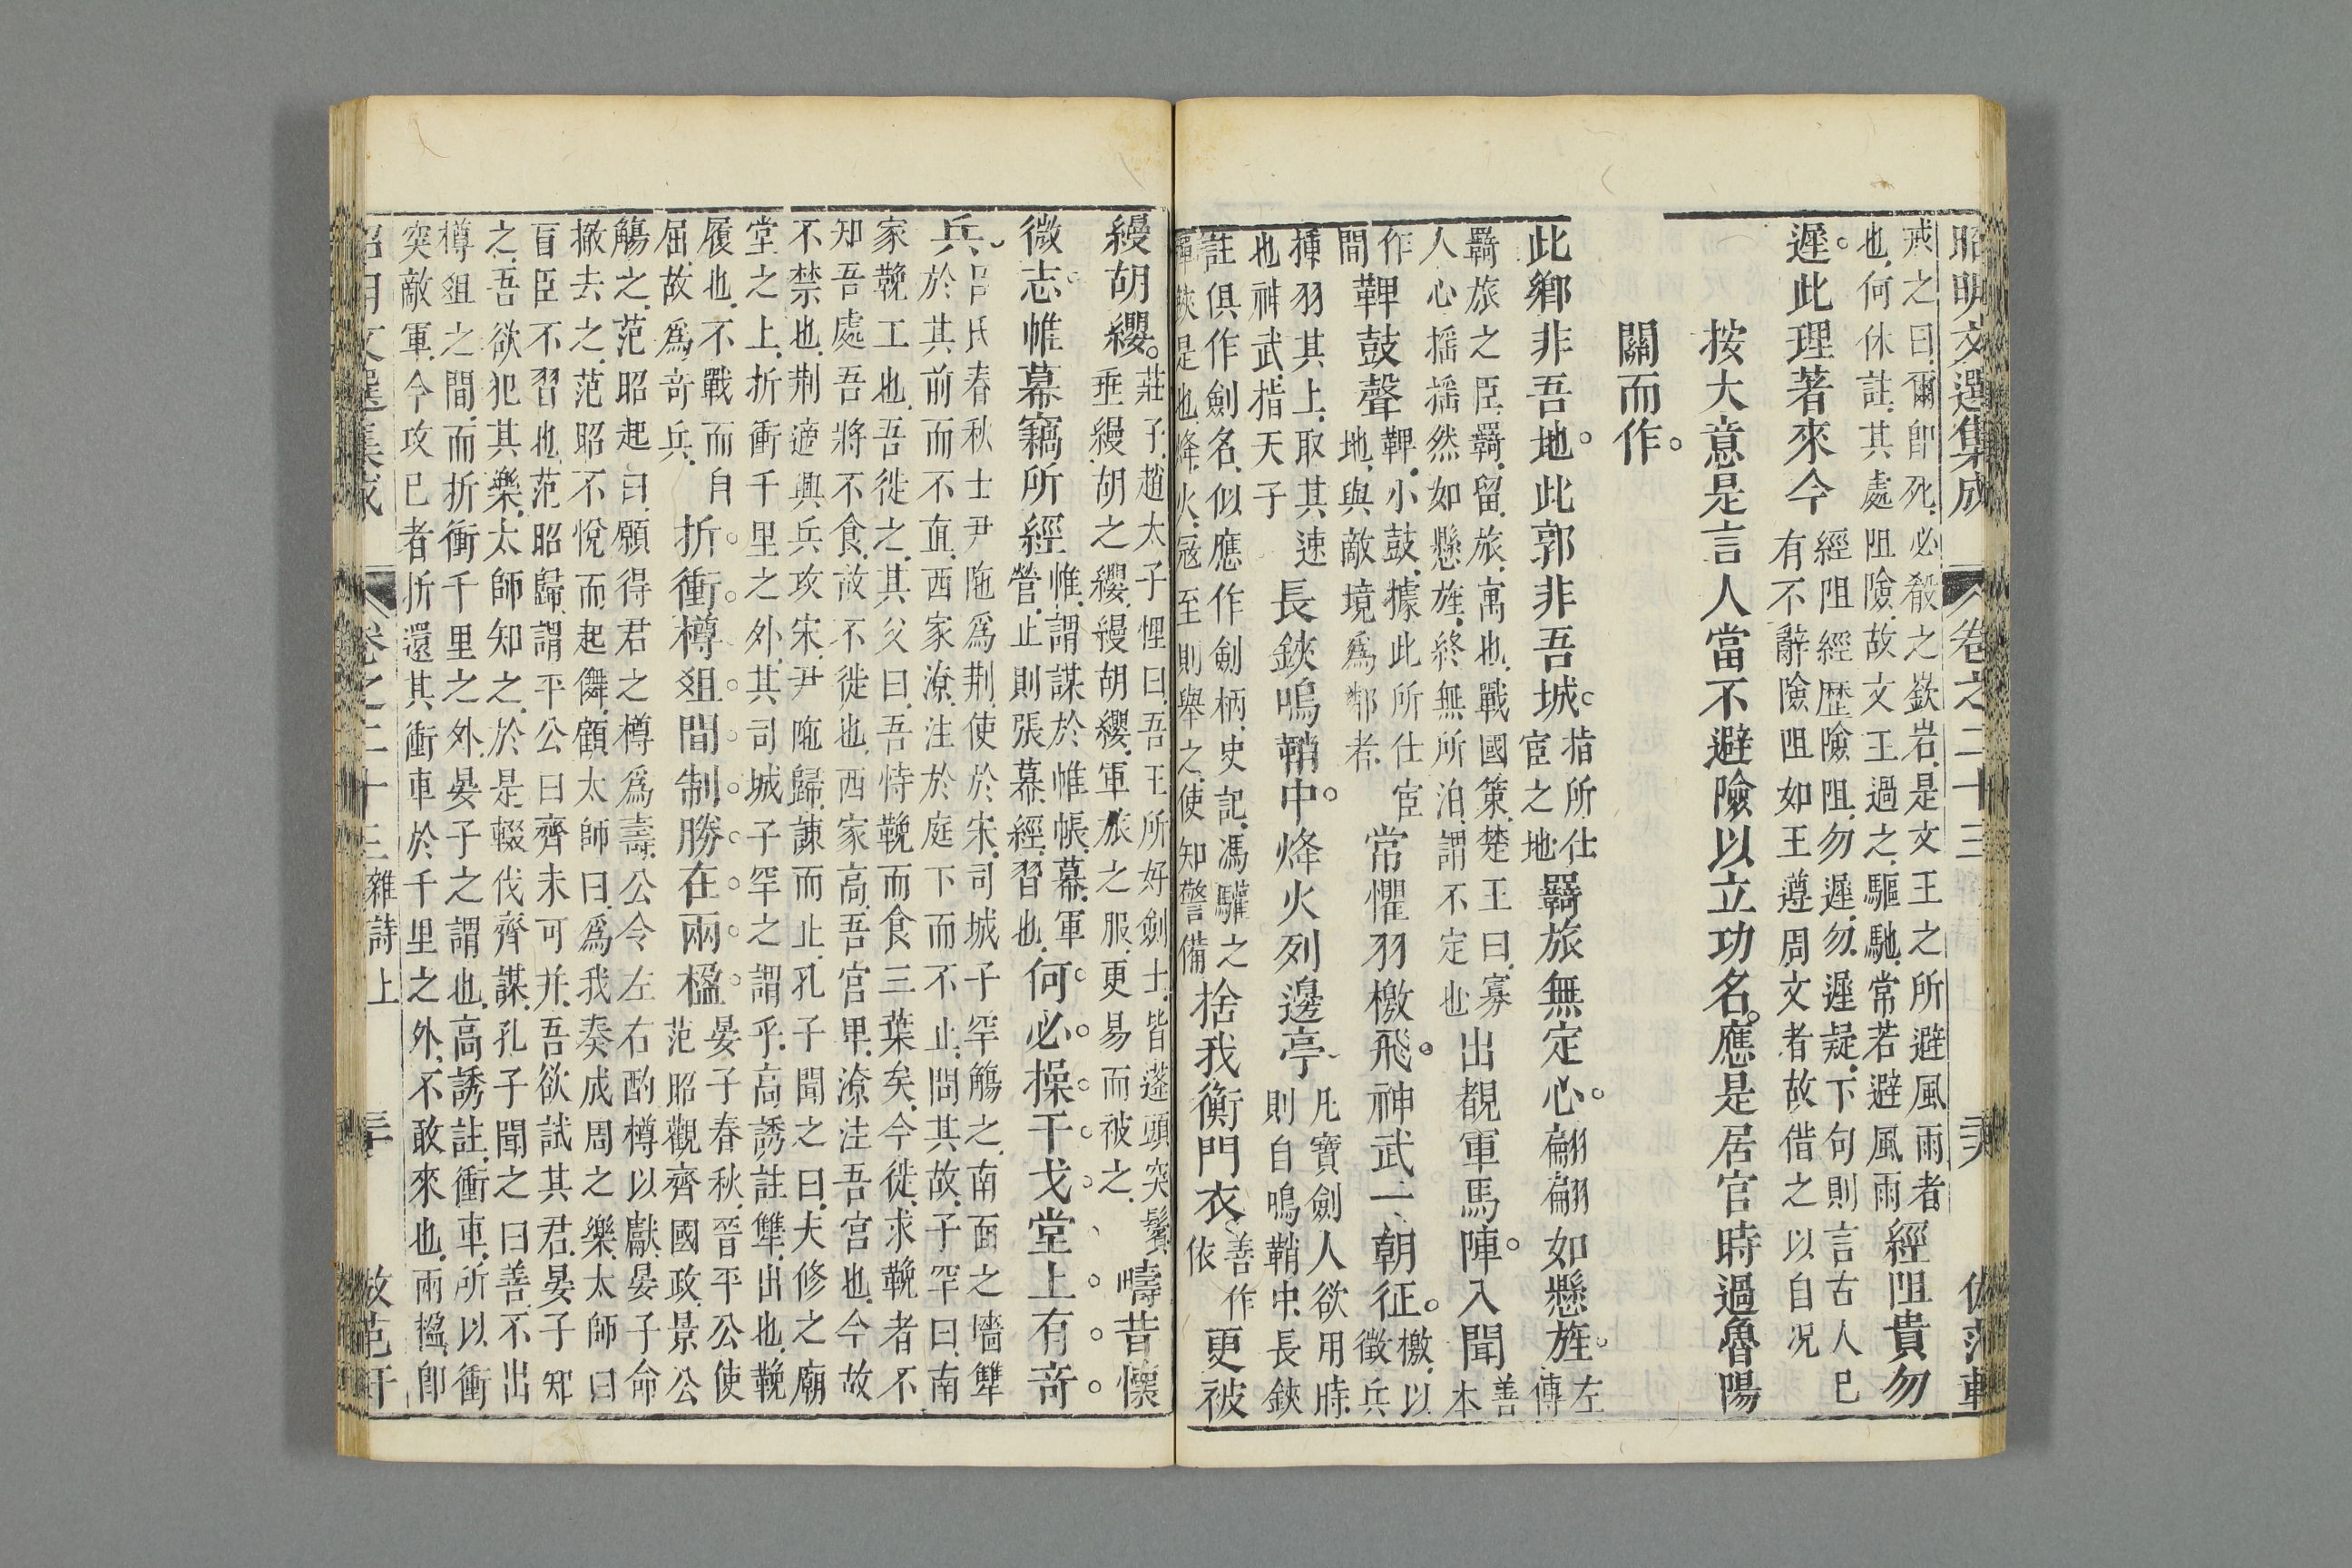 昭明文選集成 卷之二十三
戒之曰爾卽死必殽之嶔岩是文王之所避風雨者
也何休註其處阻險故文王過之驅馳常若避風雨
經阻貴勿
遲此理著來今
經阻經歷險阻勿遲勿遲疑下句則言古人已
有不辭險阻如王遵周文者故借之以自况
按大意是言人當不避險以立功名應是居官時過魯陽
關而作
此鄉非吾地此郭非吾城
指所仕
宦之地
羇旅無定心翩翩如懸旌
左
傳
羇旅之臣羇留旅寓也戰國策楚王曰寡
人心搖搖然如懸旌終無所泊謂不定也
出覩軍馬陣入聞
善
本
作
間
鞞鼓聲
鞞小鼓據此所仕宦
地與敵境爲鄰者
常懼羽檄飛神武一朝征
檄以
徵兵
揷羽其上取其速
也神武指天子
長鋏鳴鞘中烽火列邊亭
凡寶劍人欲用時
則自鳴鞘中長鋏
註俱作劍名似應作劍柄史記馮驩之
彈鋏是也烽火寇至則舉之使知警備
捨我衡門衣
善作
依
更被
縵胡纓
莊子趙太子悝曰吾王所好劍士皆蓬頭突鬢
垂縵胡之纓縵胡纓軍旅之服更易而被之
疇昔懷
微志帷幕竊所經
帷謂謀於帷帳幕軍
營止則張幕經習也
何必操干戈堂上有奇
兵
呂氏春秋士尹陁爲荆使於宋司城子罕觴之南面之墻犨
於其前而不直西家潦注於庭下而不止問其故子罕曰南
家鞔工也吾徙之其父曰吾恃鞔而食三葉矣今徙求鞔者不
知吾處吾將不食故不徙也西家高吾宮卑潦注吾宮也今故
不禁也荆適興兵攻宋尹陁歸諫而止孔子聞之曰夫修之廟
堂之上折衝千里之外其司城子罕之謂乎高誘註犨出也鞔
履也不戰而自
屈故爲奇兵
折衝樽俎間制勝在兩楹
晏子春秋晉平公使
范昭觀齊國政景公
觴之范昭起曰願得君之樽爲壽公令左右酌樽以獻晏子命
撤去之范昭不悅而起儛顧太師曰爲我奏成周之樂太師曰
盲臣不習也范昭歸謂平公曰齊未可并吾欲試其君晏子知
之吾欲犯其樂太師知之於是輟伐齊謀孔子聞之曰善不出
樽俎之間而折衝千里之外晏子之謂也高誘註衝車所以衝
突敵軍令攻已者折還其衝車於千里之外不敢來也兩楹卽
昭明文選集成 卷之二十三 雜詩上 三十